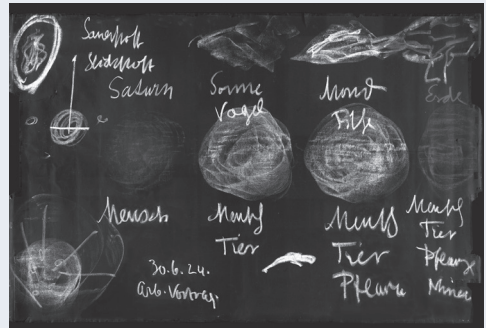 Sauerstoff
Stickstoff
Saturn
Sonne
Vogel
Mond
Fische
Erde
Mensch
Mensch
Tier
Mensch
Tier
Pflanze
Mensch
Tier
Pflanze
30.6.24.
Arb. Vortrag.